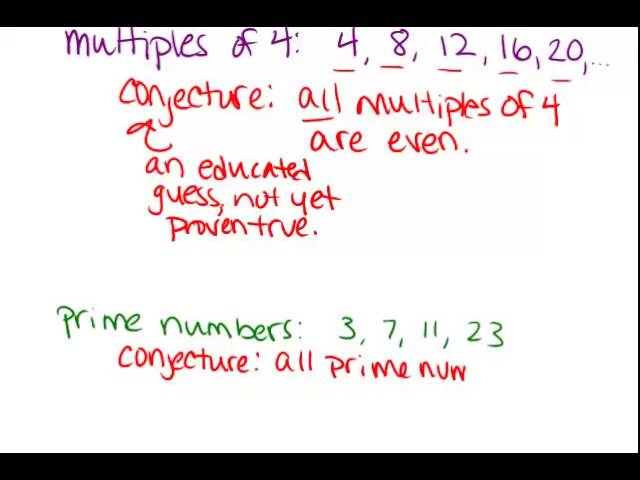 multiples of 4: 4, 8, 12, 16, 20,...
conjecture: all multiples of 4
are even.
an educated
guess, not yet
proven true.
prime numbers: 3, 7, 11, 23
conjecture: all prime num